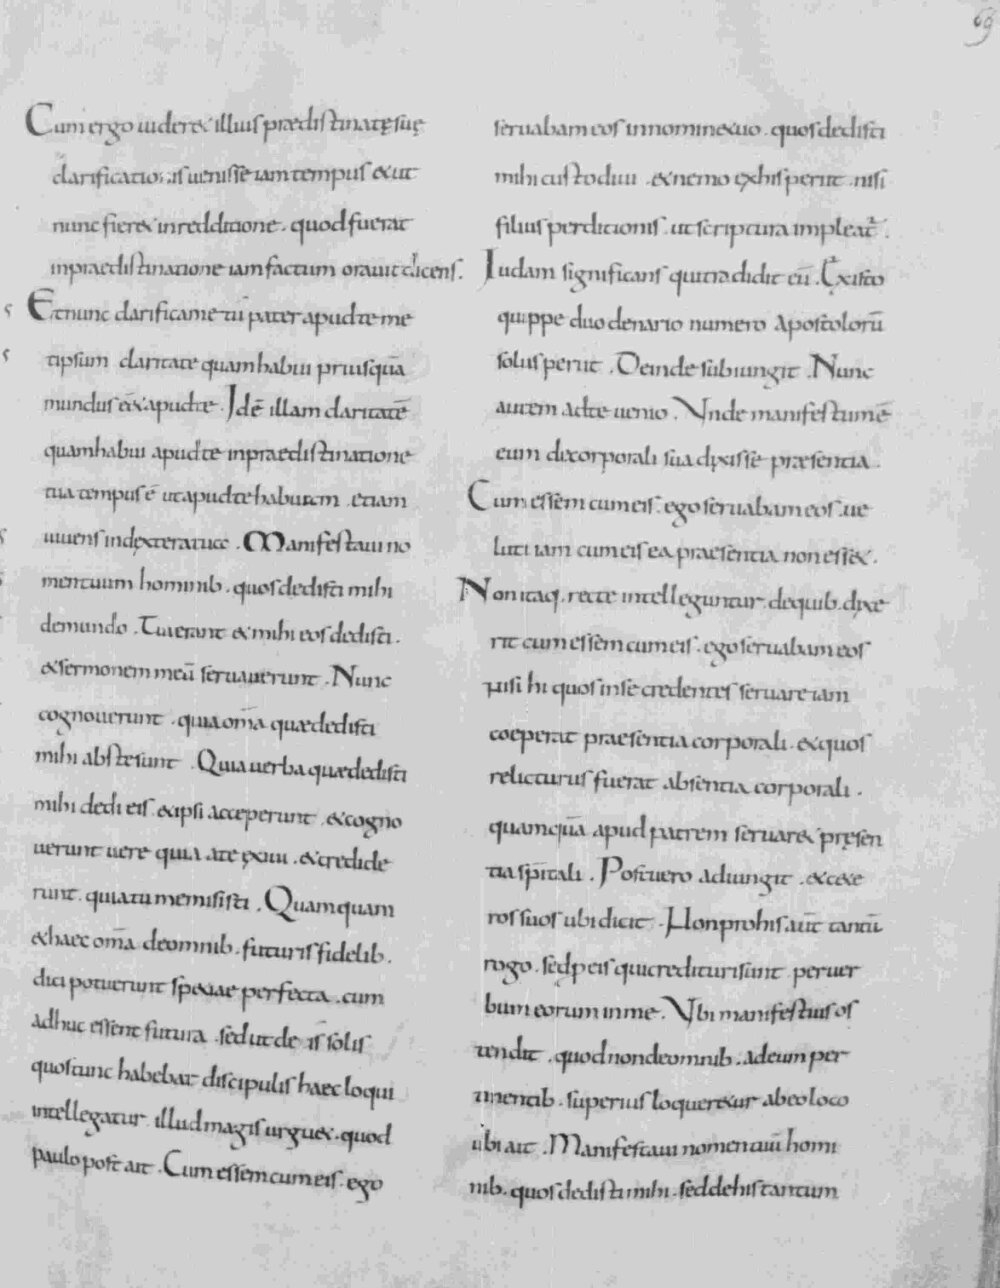 69
Cum ergo uideret illius prædistinatę suę
clarificationis uenisse iam tempus et ut
nunc fieret in redditione . quod fuerat
inpraedistinatione iam factum orauit dicens .
Et nunc clarifica me tu pater apud te me
tipsum claritate quam habui priusquā
mundus eēt apud te . Idē illam claritatē
quam habui apud te inpraedistinatione
tua tempus ē ut apud te habeam . etiam
uiuens in dextera tua . Manifestaui no
men tuum hominib . quos dedisti mihi
de mundo . Tui erant et mihi eos dedisti .
et sermonem meū seruauerunt . Nunc
cognouerunt . quia omā quæ dedisti
mihi abs te sunt . Quia uerba quæ dedisti
mihi dedi eis . et ipsi acceperunt . et cogno
uerunt uere quia a te exiui . et credide
runt . quia tu me misisti . Quamquam
et haec omā de omnib . futuris fidelib .
dici potuerunt spe iae perfecta . cum
adhuc essent futura . sed ut de is solis
quos tunc habebat discipulis haec loqui
intellegatur illud magis urguet . quod
paulo post ait . Cum essem cum eis . ego
seruabam eos in nomine tuo . quos dedisti
mihi custodiui . et nemo ex his periit . nisi
filius perditionis . ut scriptura impleat̄ .
Iudam significans qui tradidit eū . Ex isto
quippe duodenario numero Apostolorū
solus periit . Deinde subiungit . Nunc
autem ad te uenio . Vnde manifestum ē
eum de corporali sua dixisse præsentia .
Cum essem cum eis . ego seruabam eos . ue
luti iam cum eis ea praesentia non esset .
Non itaq . recte intelleguntur . de quib . dixe
rit cum essem cum eis . ego seruabam eos
nisi hi quos in se credentes seruare iam
coeperat praesentia corporali . et quos
relicturus fuerat absentia corporali .
quam q̄ua apud patrem seruaret pręsen
tia sp̄itali . Post uero adiungit . et cete
ros suos ubi dicit . Non pro his . aut̄ tantū
rogo . sed p eis qui credituri sunt . per uer
bum eorum in me . Vbi manifestius os
tendit . quod non de omnib . ad eum per
tinentib . superius loqueretur ab eo loco
ubi ait . Manifestaui nomen tuū homi
nib . quos dedisti mihi . sed de his tantum